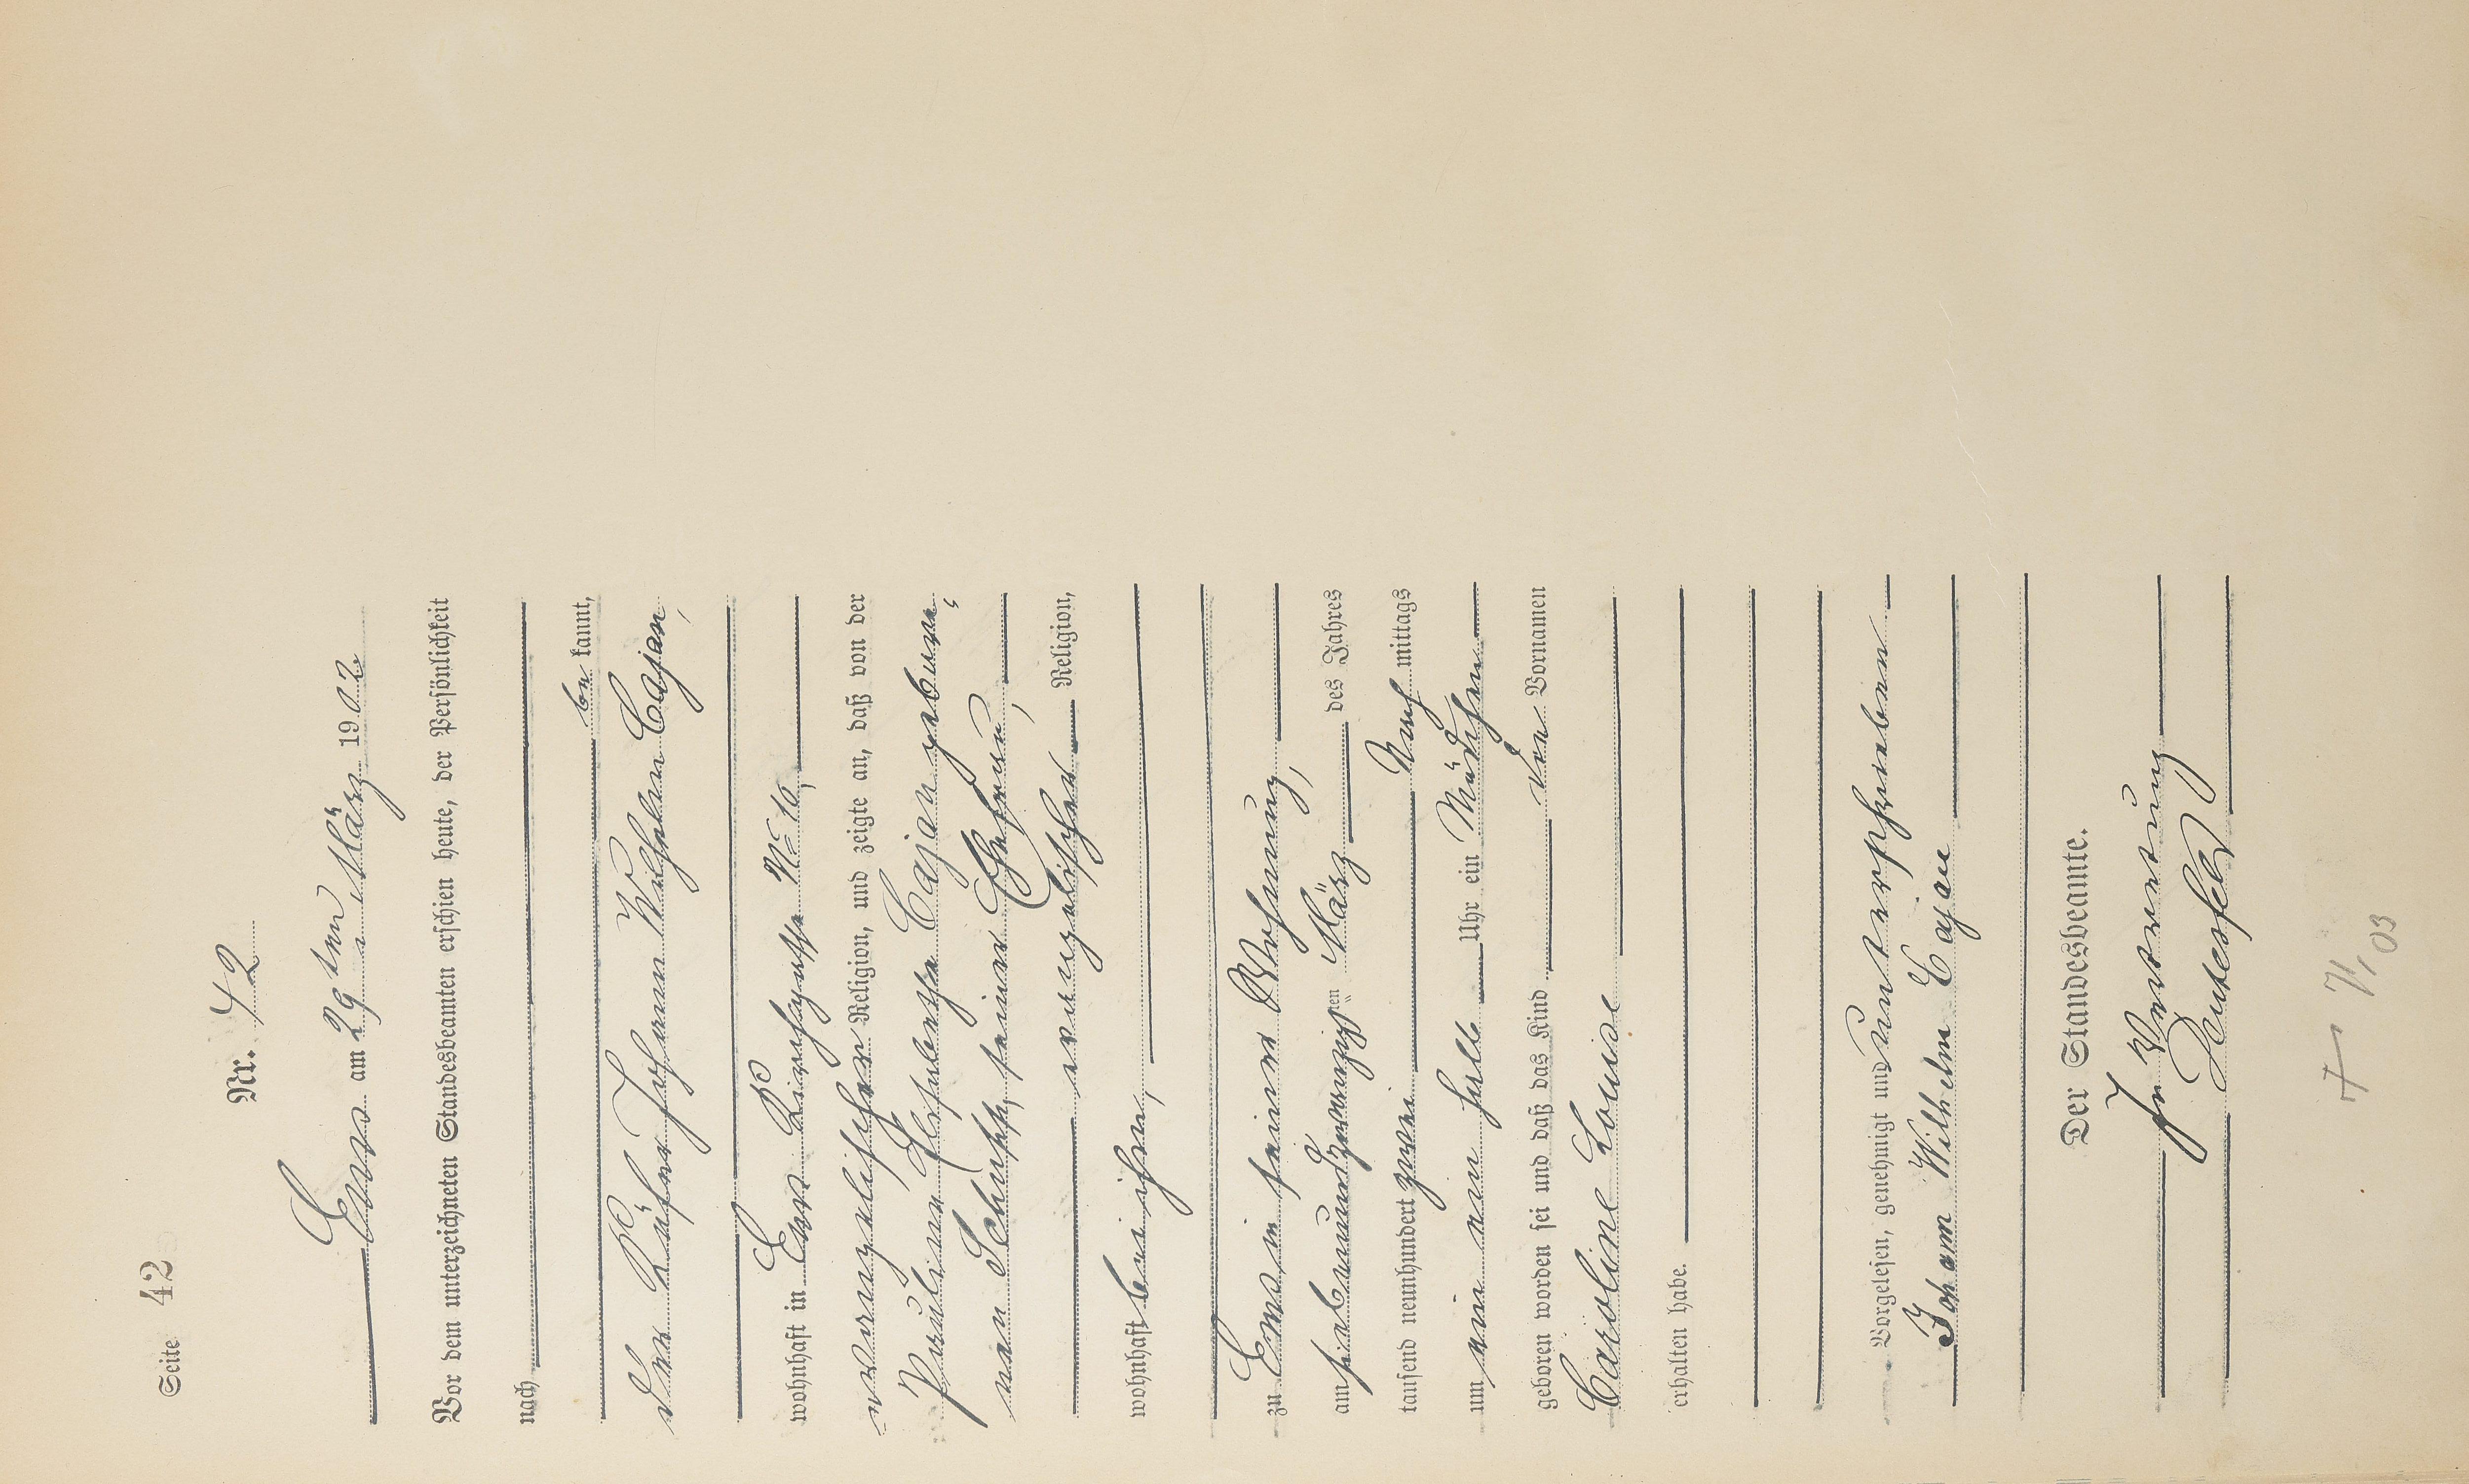 Seite 42
Nr. 42
Ems am 29 ten März 1902
Vor dem unterzeichneten Standesbeamten erschien heute, der Persönlichkeit
nach
be kannt,
der Küfer Johann Wilhelm Cajan,
wohnhaft in Ems Kirchgasse No 10,
evangelischer Religion, und zeigte an, daß von der
Pauline Elisabetha Cajan gebore-
nen Schupp, seiner Ehefrau,
evangelischer Religion,
wohnhaft bei ihm,
zu Ems in seiner Wohnung,
am siebenundzwanzigsten März des Jahres
tausend neunhundert zwei Nach mittags
um ein halb Uhr ein Mädchen
geboren worden sei und daß das Kind die Vornamen
Caroline Louise
erhalten habe.
Vorgelesen, genehmigt und unterschrieben
Johann Wilhelm Cajan
Der Standesbeamte.
In Vertretung